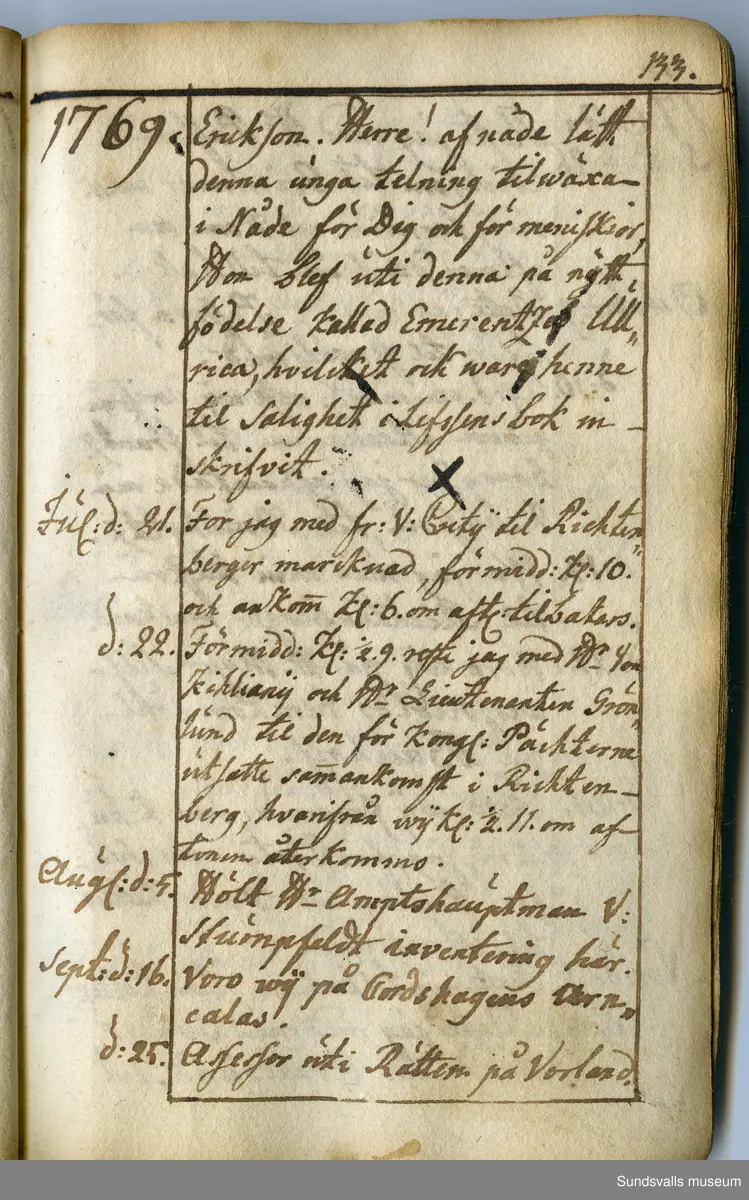 133.
1769. Erickson. Herre! af nåde lått
denna unga telning tilwäxa
i Nåde för Dig och för meniskior,
Hon blef uti denna på nytt
födelse kallad Emerentza Ull„
rica, hvilcket ock ware henne
til salighet i Lifssens bok in-
skrifvit.
Jul: d: 21. For jag med fr: V: til Richten„
berger marcknad, förmidd: kl: 10.
och ankom̄ kl: 6. om aft: tilbakars.
d: 22. Förmidd: kl: ½ 9. reste jag med Hr Von
och Hr Lieutenanten Grön„
lund til den för Kongl: Pächterne
utsatte sam̄ankomst i Richten-
berg, hvarifrån wÿ kl: ½ 11. om af-
tonen återkommo.
Aug: d: 5. Hölt Hr Amptshauptman V:
Stumpfeldt inventering här.
Sept: d: 16. Voro wÿ på Cordshagens Arn„
calas.
d: 25. Assessor uti Rätten på Vorland.
Sundsvalls museum